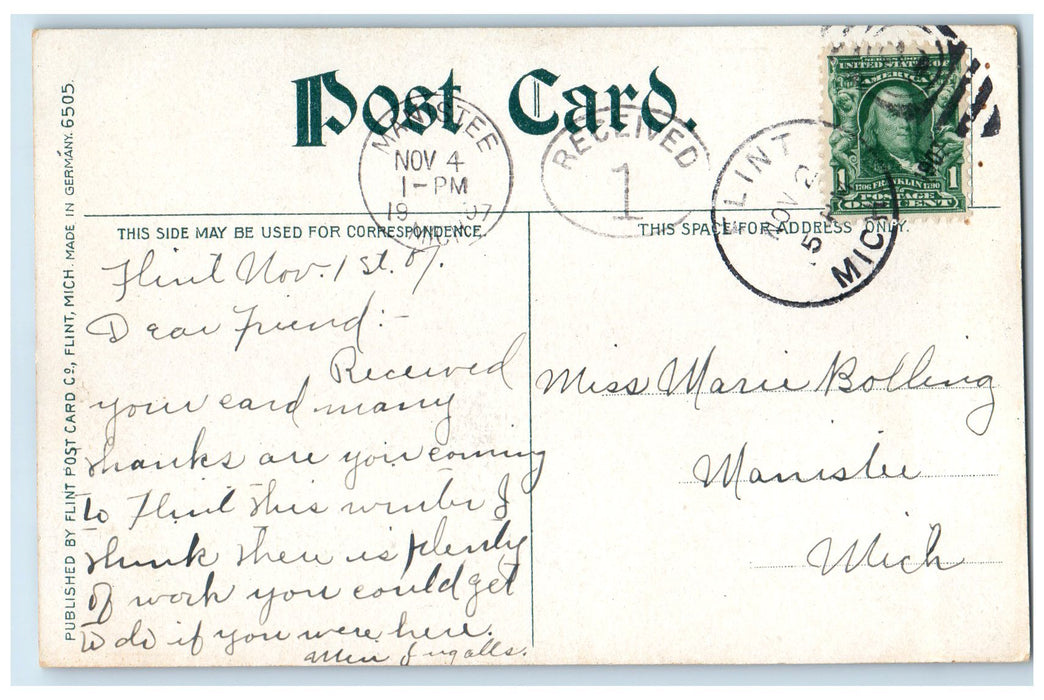 Post Card.
MANISTEE
NOV 4
1-PM
1907
MICH.
RECEIVED
1
FLINT
NOV 2
5
MICH.
SERIES 1902
UNITED STATES OF
AMERICA
1706 FRANKLIN 1790
1 POSTAGE 1
ONE CENT
THIS SIDE MAY BE USED FOR CORRESPONDENCE.
THIS SPACE FOR ADDRESS ONLY.
Flint Nov. 1st. 07.
Dear Friend:-
Received
your card many
thanks are you coming
to Flint this winter I
think there is plenty
of work you could get
to do if you were here.
Ingalls.
Miss Marie Bolling
Manistee
Mich
PUBLISHED BY FLINT POST CARD Co., FLINT, MICH. MADE IN GERMANY. 6505.